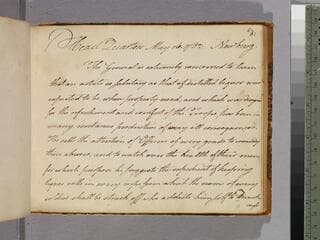 Head Quarters May 16. 1782 Newburg
The General is extremely concerned to learn
that an article so salutary as that of distilled liquor was
expected to be when properly used, and which was designed
for the refreshment and comfort of the Troops, has been in
many instances productive of very ill consequences.
He calls the attention of Officers of every grade to remedy
these abuses, and to watch over the health of their men
for which purpose he suggests the expedient of keeping
liquor rolls in every corps from which the name of every
soldier shall be struck off who addicts himself to Drunk